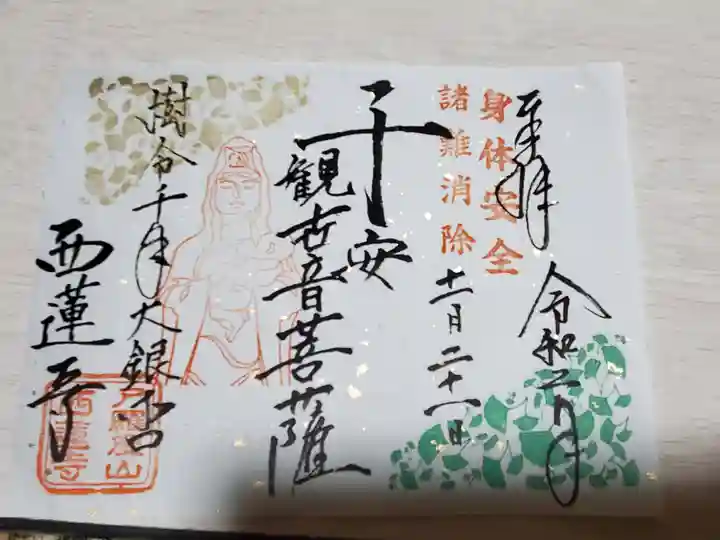 奉拝 令和二年
身体安全
諸難消除
十一月二十一日
子安
観世音菩薩
樹令千年大銀杏
西蓮寺
西蓮寺